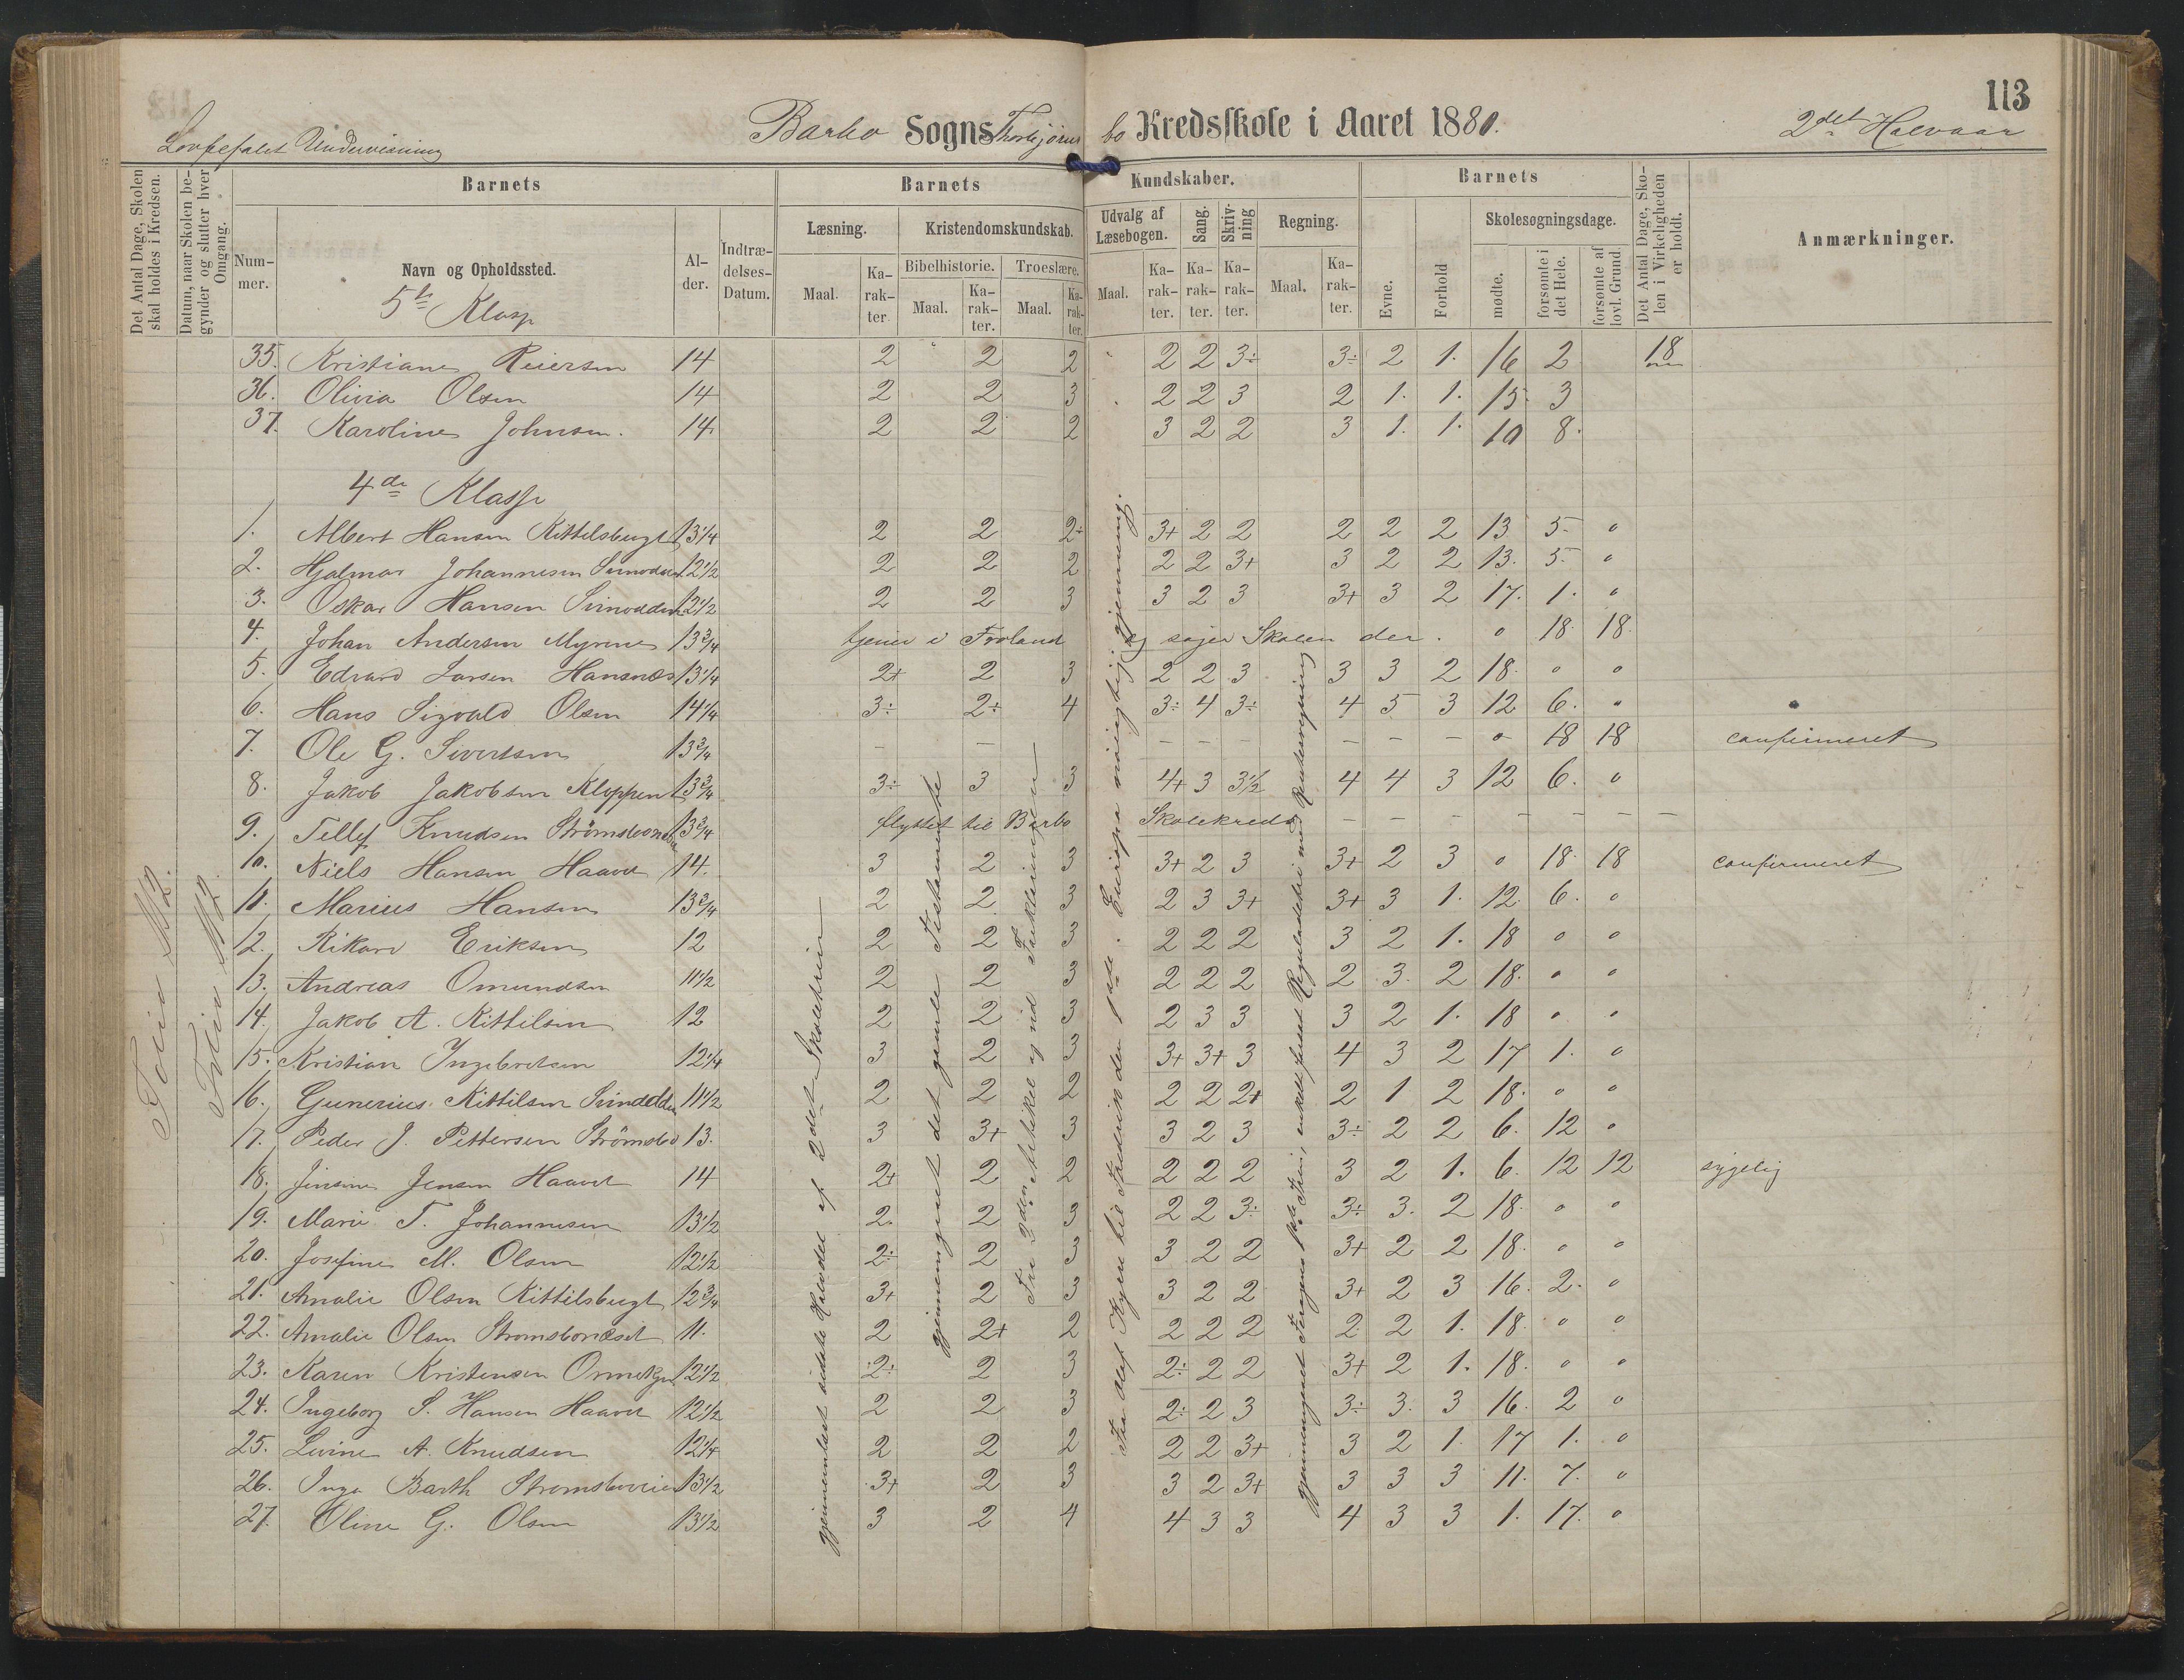 113
Barbo Sogns Thorbjørnsbo Kredsskole i Aaret 1880. 2det Halvaar
Lovbefalet Undervisning
Det Antal Dage, Skolen skal holdes i Kredsen.
Datum, naar Skolen begynder og slutter hver Omgang.
Barnets
Nummer.
Navn og Opholdssted.
Alder.
Indtrædelses-Datum.
Barnets Kundskaber.
Læsning.
Maal.
Karakter.
Kristendomskundskab.
Bibelhistorie.
Maal.
Karakter.
Troeslære.
Maal.
Karakter.
Udvalg af Læsebogen.
Maal.
Karakter.
Sang.
Karakter.
Skrivning
Karakter.
Regning.
Maal.
Karakter.
Barnets
Evne.
Forhold
Skolesøgningsdage.
mødte.
forsømte i det Hele.
forsømte af lovl. Grund
Det Antal Dage, Skolen i Virkeligheden er holdt.
Anmærkninger.
5te Klasse
35. Kristiane Reiersen 14 2 2 2 2 2 3÷ 3÷ 2 1. 16 2 18
36. Olivia Olsen 14 2 2 3 2 2 3 2 1. 1. 15 3
37. Karoline Johnsen. 14 2 2 2 3 2 2 3 1. 1. 10 8.
4de Klasse
1. Albert Hansen Kittelsbugt 13 1/4 2 2 2÷ 3+ 2 2 2 2 2 13 5 0
2. Hjalmar Johannesen 12 1/2 2 2 2 2 2 3+ 3 2 2 13. 5 0
3. Oskar Hansen Svinodden 12 1/2 2 2 3 3 2 3 3+ 3 2 17. 1. 0
4. Johan Andersen Myrene 13 3/4 tjener i Froland og søger Skolen der. 0 18 18
5. Edvard Larsen Hansnæs 13 1/4 2+ 2 3 2 2 3 3 3 2 18. 0 0
6. Hans Sigvald Olsen 14 1/4 3÷ 2÷ 4 3÷ 4 3÷ 4 5 3 12 6. 0
7. Ole G. Sivertsen 13 3/4 – – – – – – – – 0 18 18 confirmeret
8. Jakob Jakobsen Kleppen 13 3/4 3÷ 3 3 4+ 3 3 1/2 4 4 3 12 6. 0
9. Tellef Knudsen 13 3/4 flyttet til Barbo Skolekreds – – – – – – –
10. Niels Hansen Haavet 14. 3 2 3 3+ 2 3 3+ 2 3 0 18 18 confirmeret
11. Marius Hansen 13 3/4 2 2 3 2 3 3+ 3+ 3 1. 12. 6. 0
12. Rikard Eriksen 12 2 2 3 2 2 2 3 2 1. 18 0 0
13. Andreas Omundsen 11 1/2 2 2 3 2 2 2 2 3. 2 18. 0 0
14. Jakob A. Kittilsen 12 2 2 3 2 3 3 3 2 1. 18 0 0
15. Kristian Ingebretsen 12 1/4 3 2 3 3+ 3+ 3 4 3 2 17 1. 0
16. Gunerius Kittilsen 11 1/2 2 2 2 2 2 2+ 2 1 2 18. 0 0
17. Peder J. Pettersen Strömsbo 13. 3 3+ 3 3 2 3 3÷ 2 2 6. 12 0
18. Jensine Jensen Haavet 14 2+ 2 2 2 2 2 3 2 1. 6. 12 12 sygelig
19. Marie T. Johannesen 13 1/2 2. 2 3 2 2 3÷ 3÷ 3. 2 18. 0 0
20. Josefine M. Olsen 12 1/2 2÷ 2 3 3 2 2 3+ 2 2 18. 0 0
21. Amalie Olsen Kittilsbugt 12 3/4 3+ 2 3 3 2 2 3+ 2 3 16. 2. 0
22. Amalie Olsen 11. 2 2+ 2 2 2 2 2 2 1. 18. 0 0
23. Karen Kristensen 12 1/2 2÷ 2 3 2÷ 2 2 3+ 2 1. 18. 0 0
24. Ingeborg S. Hansen Haavet 12 1/2 2 2 3 2÷ 2 3 3÷ 3. 3 16. 2 0
25. Levine A. Knudsen 12 1/4 2 2 2 2 2 3+ 3 2 1. 17 1. 0
26. Inga Barth Strømsboveien 13 1/2 3+ 2 3 3 2 3+ 3 3 3 11. 7. 0
27. Oline G. Olsen 13 1/2 3 2 4 4 3 3 4 3 3 1. 17. 0
gjennemlæst sidste Halvdel af 2det Skoletrin
gjennemgaaet det gamle Testamente
Fra 3die Artikel og ud Forklaringen
Fra Olaf Kyrre til Fredrik den 1ste. Europa nøiagtig gjennemg.